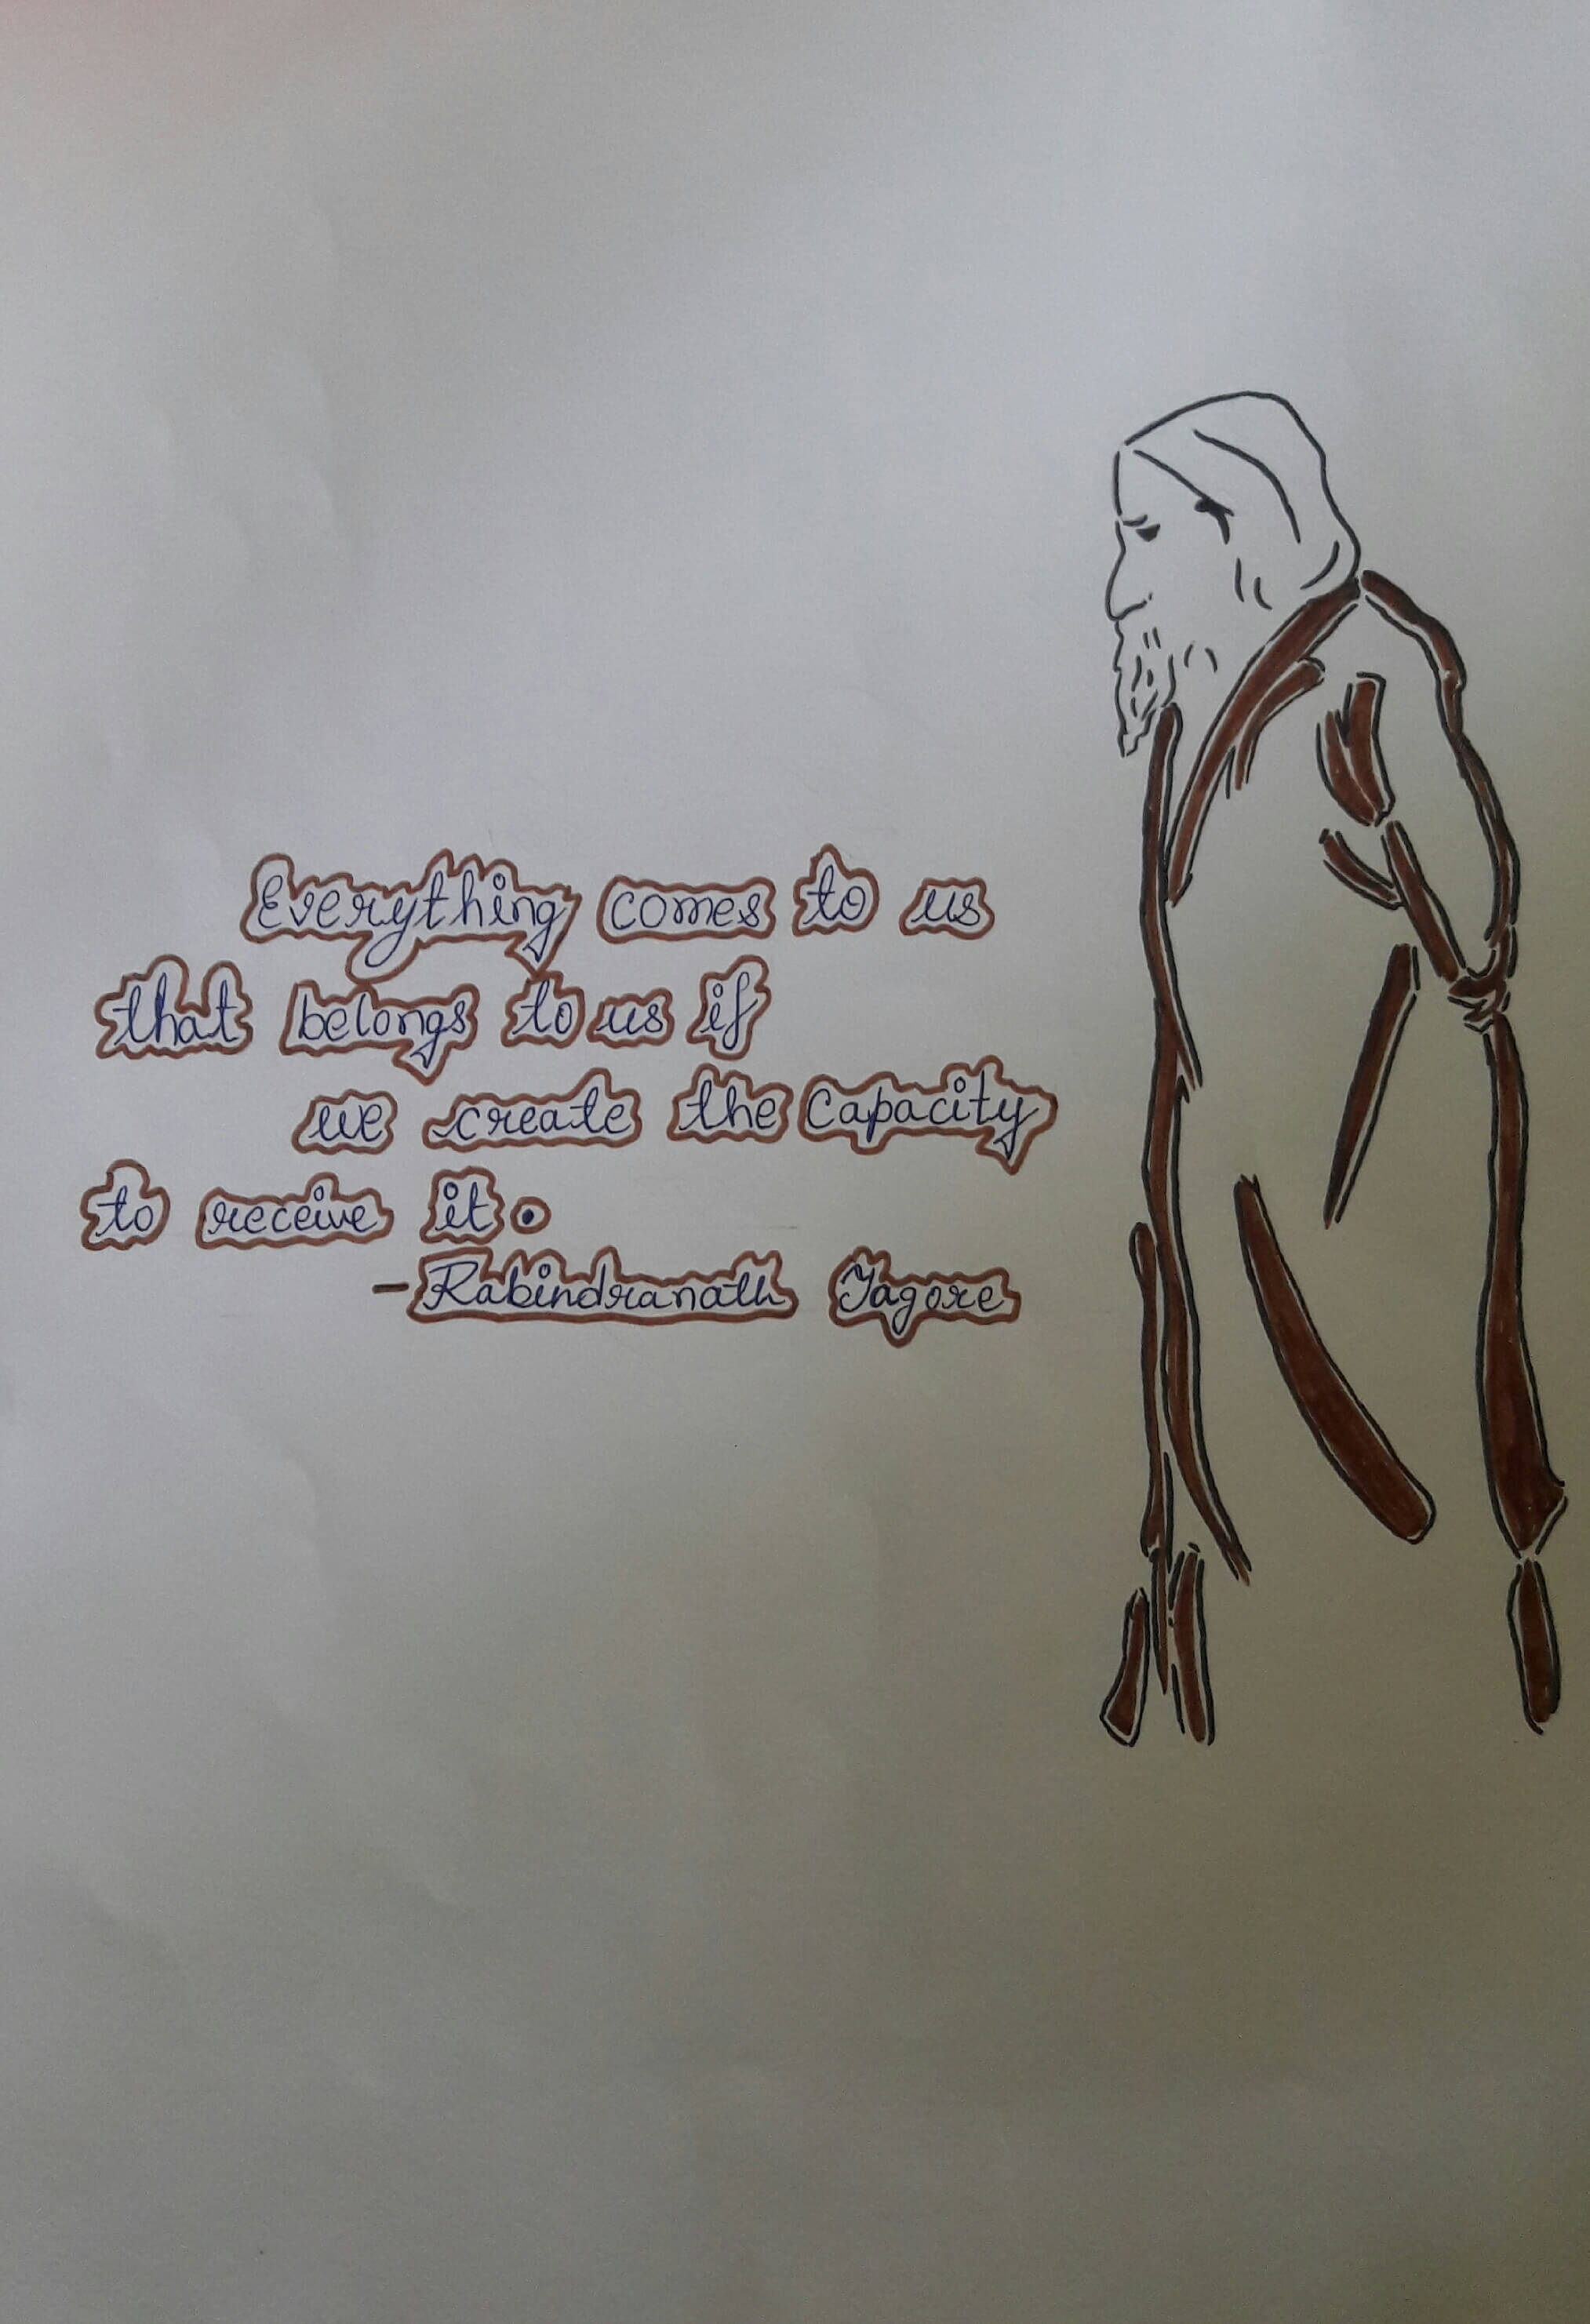 Everything comes to us
that belongs to us if
we create the Capacity
to receive it.
- Rabindranath Tagore